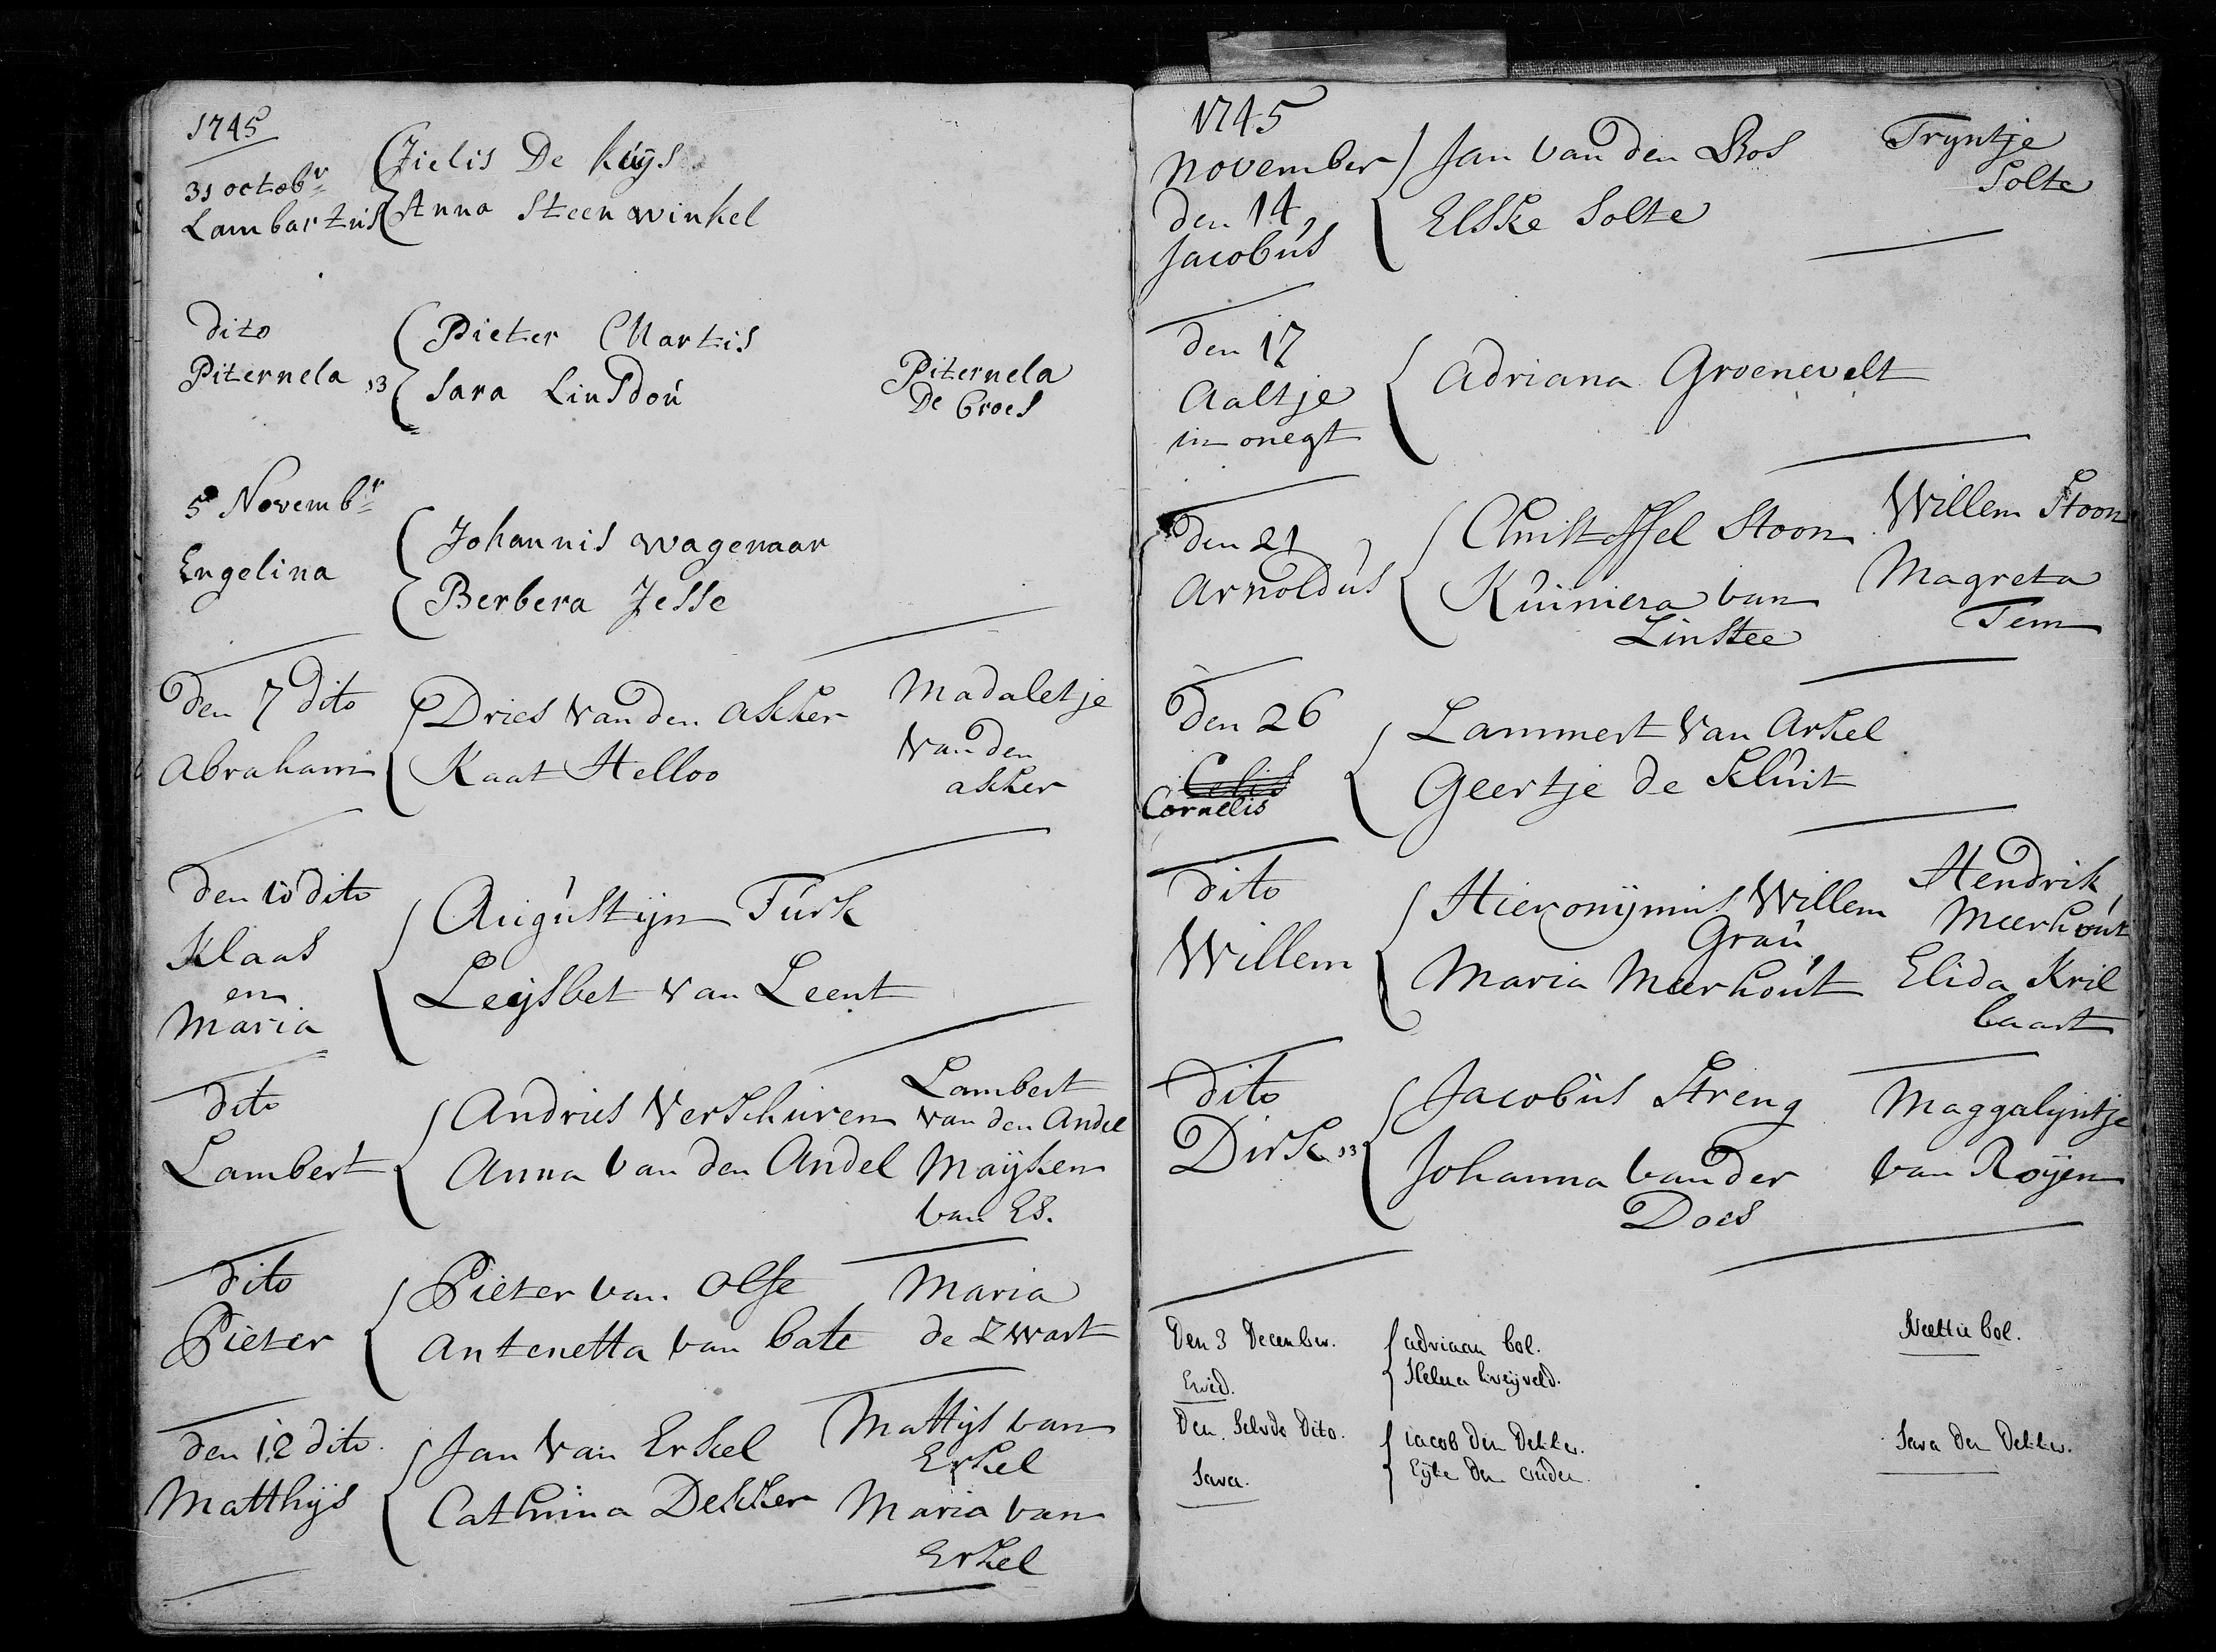 1745
31 octobr
Lambartus
Jielis De Kuÿs
Anna Steenwinkel
dito
Piternela 13
Pieter Martis
Sara Linsdou
Piternela
De Groes
5 Novembr
Engelina
Johannis wagenaar
Berbera Jesse
Den 7 dito
Abraham
Dries Van den Akker
Kaat Helloo
Madaletje
Van den
akker
Den 10 dito
Klaas
en
Maria
Augustijn Turk
Leijsbet van Leent
dito
Lambert
Andries Verschuren
Anna van den Andel
Lambert
van den Andel
Maÿken
van Es.
dito
Pieter
Pieter van Olfe
Antenetta van bate
Maria
de Zwart
den 12 dito
Matthijs
Jan Van Erkel
Cathrina Dekker
Mattijs van
Erkel
Maria van
Erkel
1745
November
den 14
Jacobus
Jan van den Bos
Elske Solte
Tryntje
Solte
den 17
Aaltje
in onegt
Adriana Groenevelt
Den 21
Arnoldus
Christoffel Stoon
Kuiniera van
Linstee
Willem Stoon
Magreta
Tem
Den 26
Celis
Cornelis
Lammert Van Arkel
Geertje de Kluit
dito
Willem
Hieronÿmus Willem
Grau
Maria Meerhout
Hendrik
Meerhout
Elida Kril
baart
dito
Dirk 13
Jacobus Streng
Johanna van der
Does
Maggalyntje
van Roÿen
Den 3 December.
Ewid.
adriaan bol.
Helena kreijveld.
Neeltie bol.
Den Selvde Dito.
Sara.
iacob den Dekker.
Eijke den ouden.
Sara den Dekker.